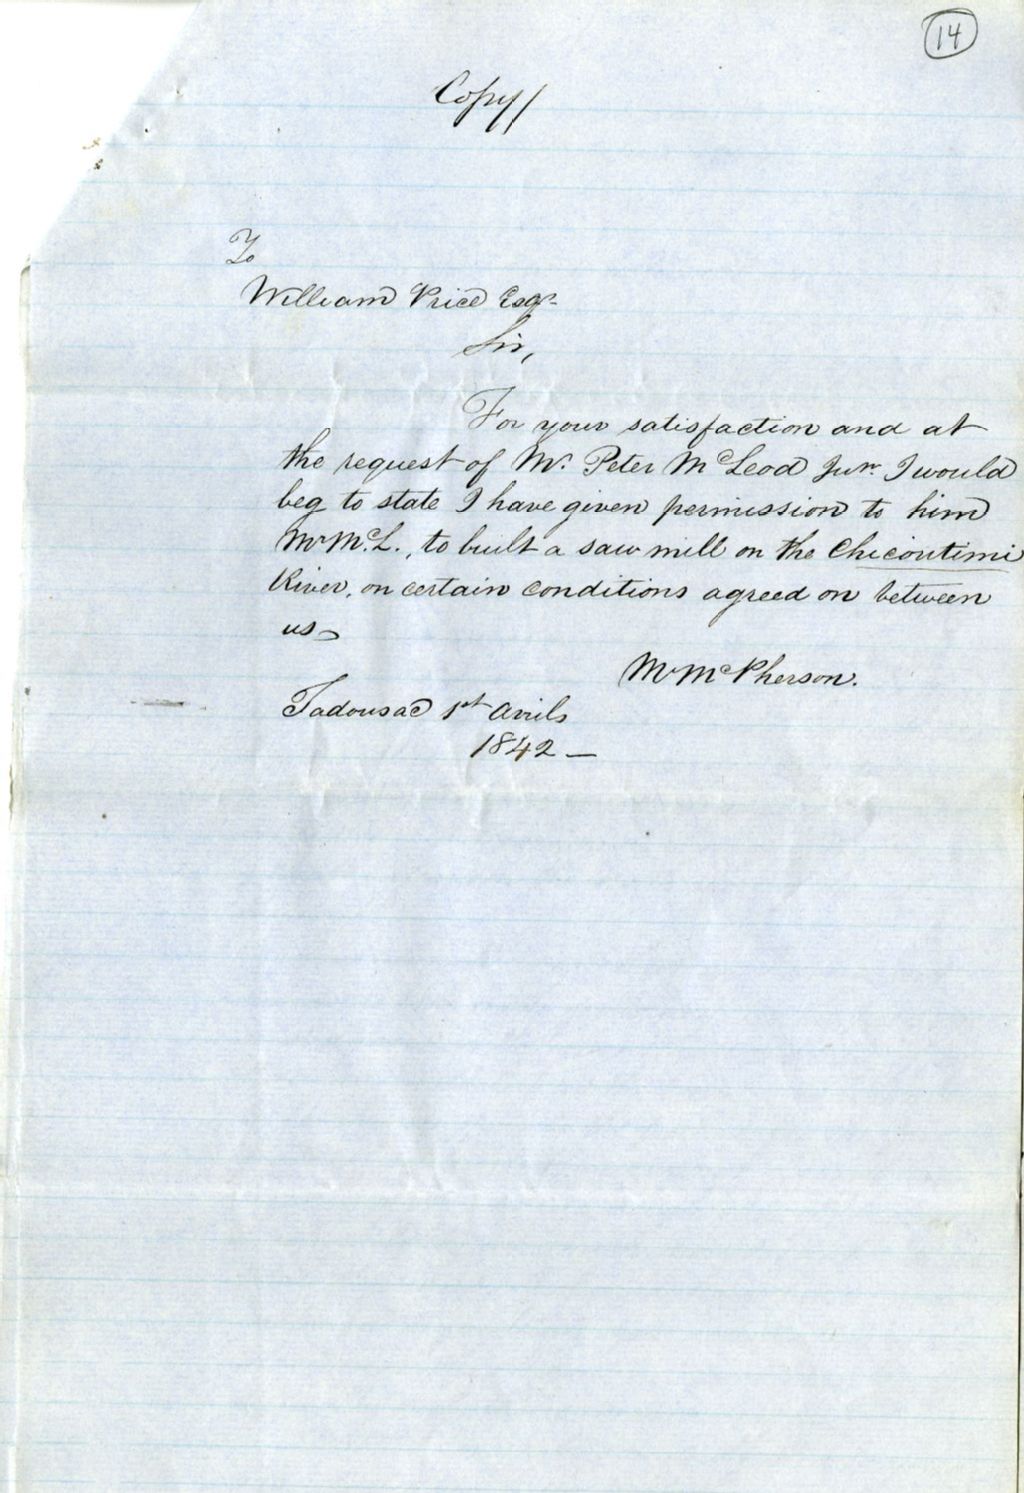 14
Copy/
To
William Price Esqr.
Sir,
For your satisfaction and at
the request of Mr. Peter McLeod Junr. I would
beg to state I have given permission to him
Mr McL., to built a saw mill on the Chicoutimi
River, on certain conditions agreed on between
us
Mr McPherson.
Tadousac 1st Avrils
1842 —